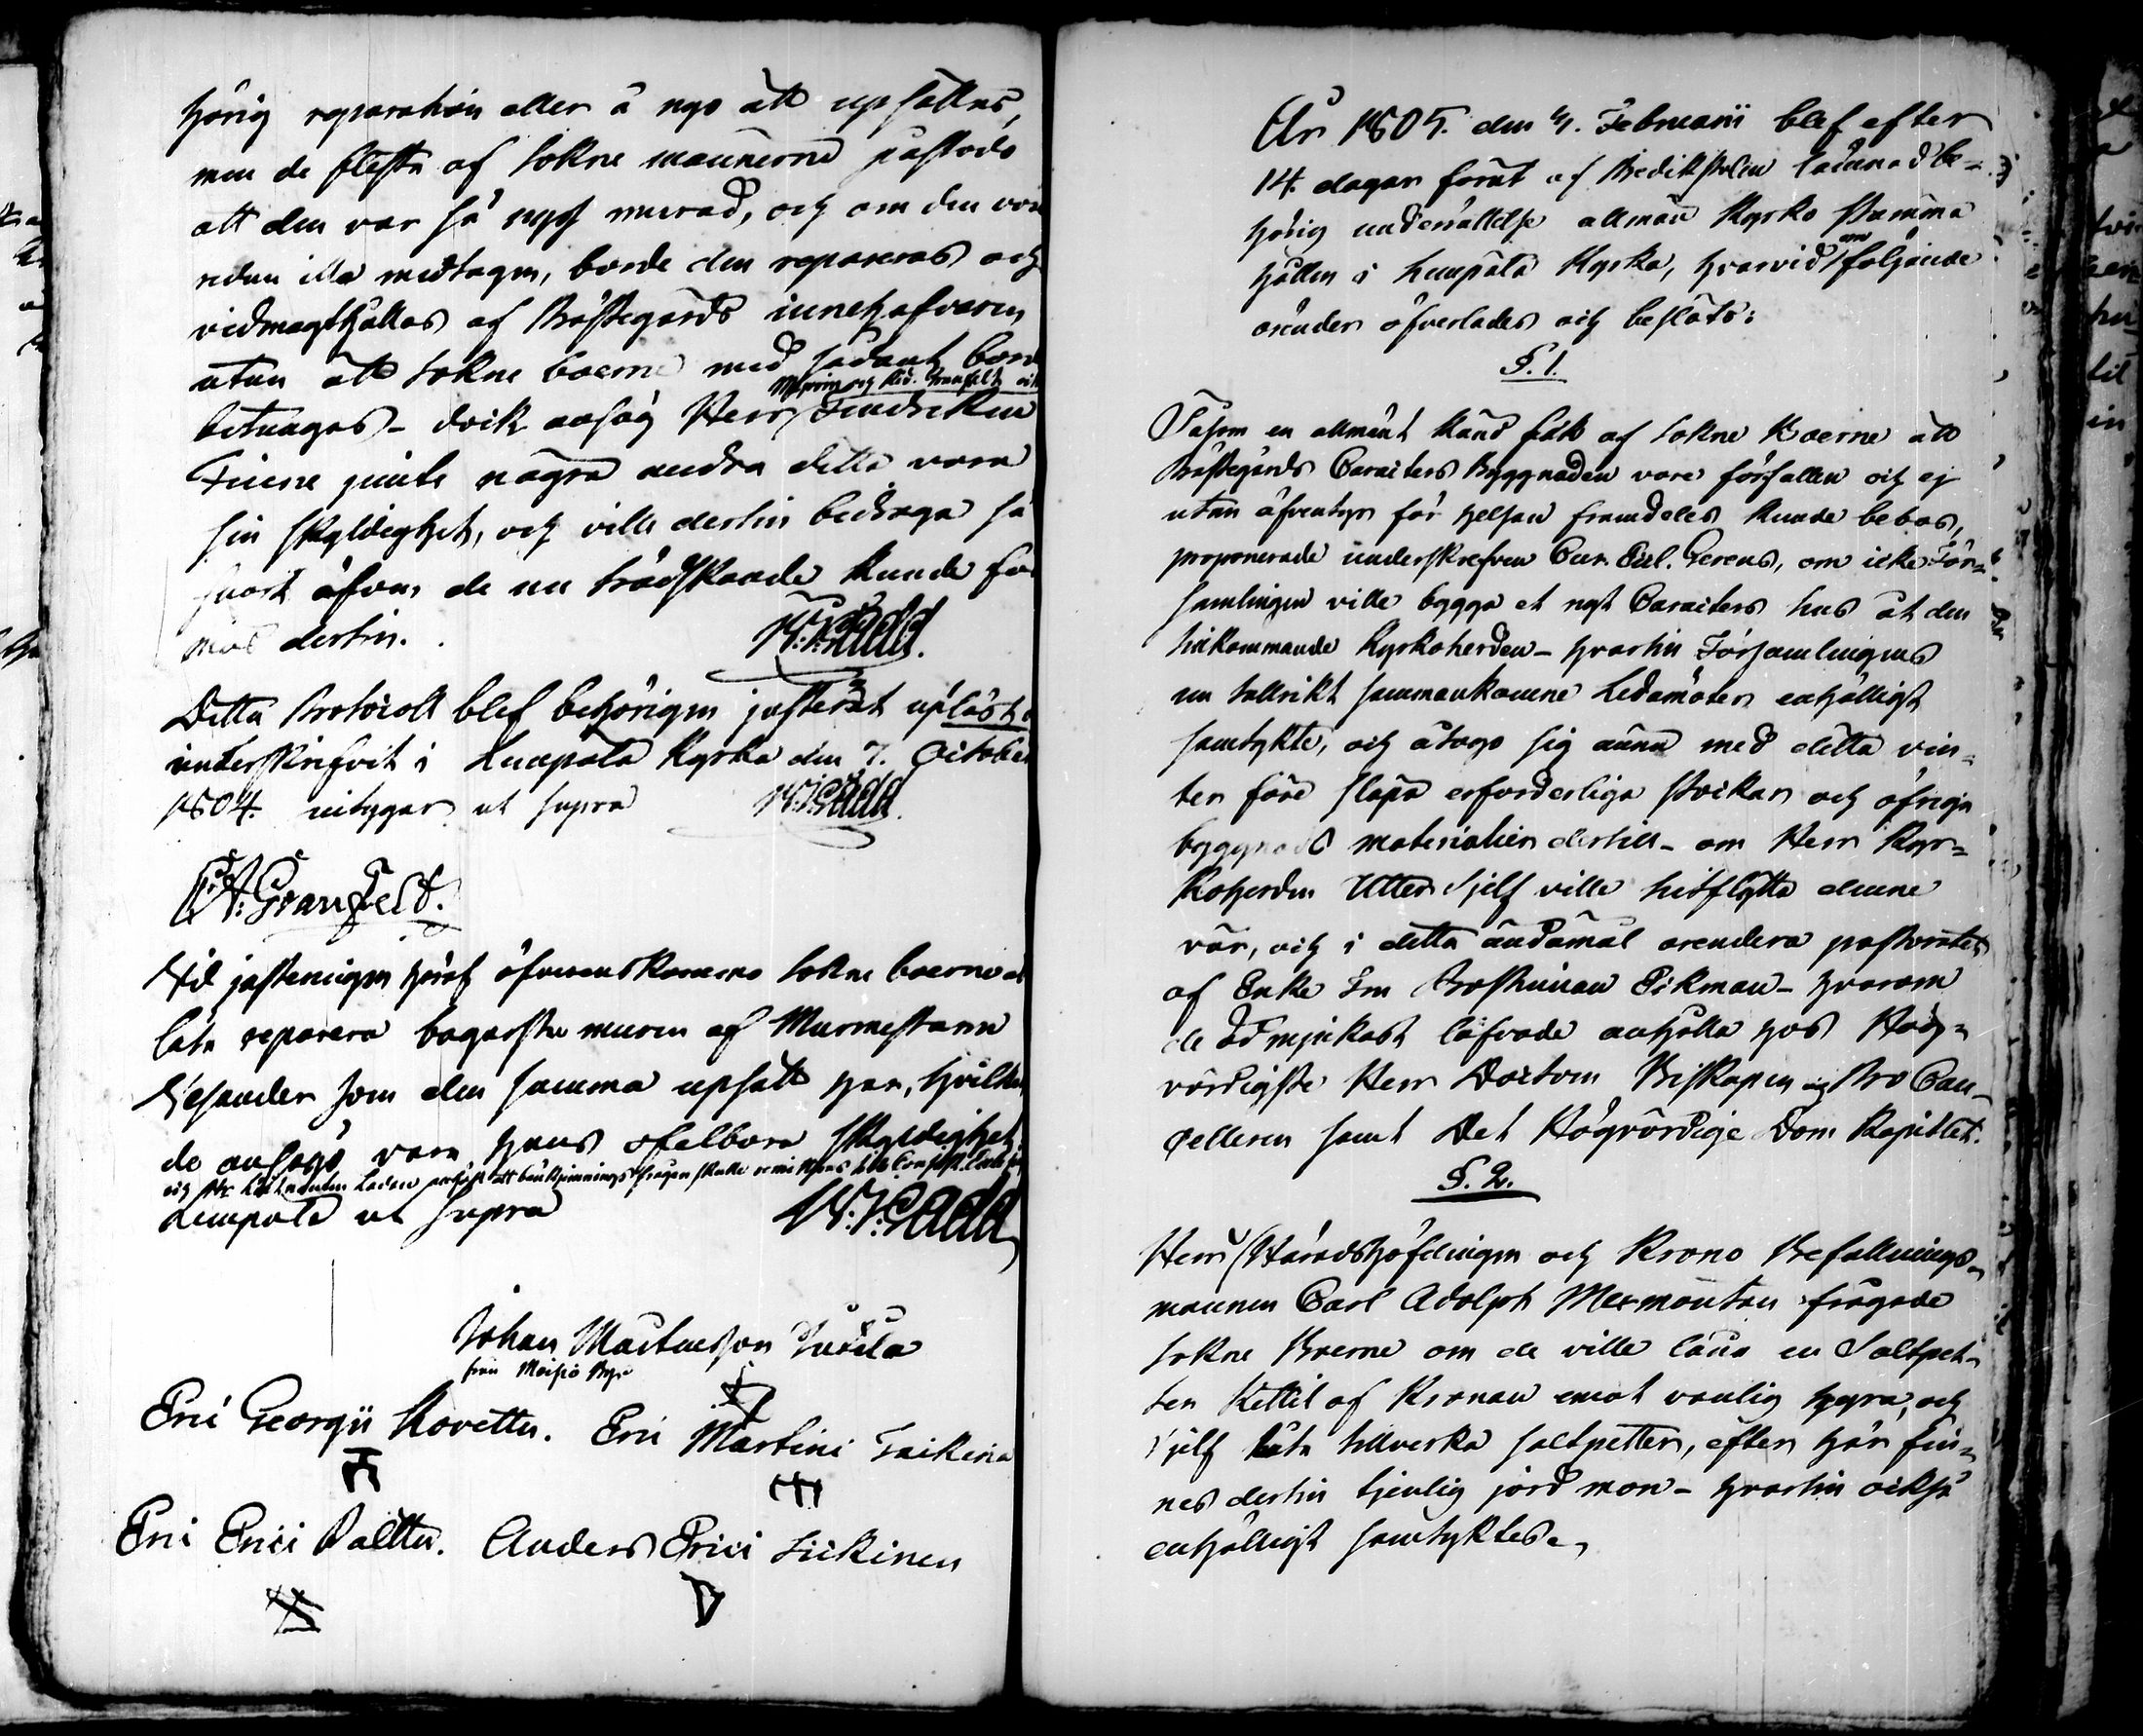 hörig reparation eller å nyo att upsättas,
men de flesta af Sokne männerne påstodo
att den var så nyss murad, och om den vore
redan illa medtagen, borde den repareras och
vidmagthållas af Prästegårds innehafvaren
utan att Sokne boerne med sådant borde
Majoren och Rid. Granfelt och
betungas – dock ansåg Herr Fendriken
jemte några andra detta vara
sin skyldighet, och ville dertill bidraga så
snart äfven de nu trädskande kunde för
mås dertill.
Detta Protocoll blef behörigen justerat upläst o
underskrifvit i Lempälä Kyrka den 7. October
1804. intygar ut supra
Granfelt.
Vid justeringen häraf öfverenskommo Sokne boerne at
låta reparera bagarstu muren af Murmestaren
som den samma upsatt har, hvilket
de ansågo vara hans ofelbara skyldighet
Lempälä ut supra
Johan Mattsson
från Moisio By
Eric Georgii Kovettu. Eric Martini
Eric Erici Paltta. Anders Erici
År 1805. den 4. Februarii blef efter
14. dagar förut af Predikstolen lämnad be-
hörig underrättelse allmän Kyrko stämma
hållen i Lempälä Kyrka, hvarvid om följande
ärender öfverlades och beslöts:
§. 1.
Såsom en allmänt känd sak af Sokne Boerne att
Prästegårds Caracters Byggnaden vore förfallen och ej
utan äfventyr för helsan framdeles kunde bebos,
proponerade underskrefven Cur. Eccl. Gerens, om icke För-
samlingen ville bygga et nytt Caracters hus åt den
tilkommande Kyrkoherden – hvartill Församlingens
nu talrikt sammankomne Ledamöter enhälligt
samtykte, och åtogo sig ännu med detta vin-
ter före släpa erforderliga stockar och öfriga
byggnads materialier dertill – om Herr Kyr-
koherden Utter sjelf ville hitflytta denne
vår, och i detta ändamål arendera pastoratet
af Enke Fru Prostinnan Eekman – hvarom
de ödmjukast låfvade anhålla hos Hög-
vördigste Herr Doctorn Biskopen och Pro Can-
cellern samt Det Högvördige Dom Kapitlet.
§. 2.
Herr Häradshöfdingen och Krono Befallnings-
mannen Carl Adolph Mermontan frågade
Sokne Boerne om de ville låna en Saltpet-
ter Kettil af Kronan emot vanlig hyra, och
sjelf låta tillverka saltpetter, efter här fin-
nes dertill tjenlig jord mon – hvartill också
enhälligt samtyktes.